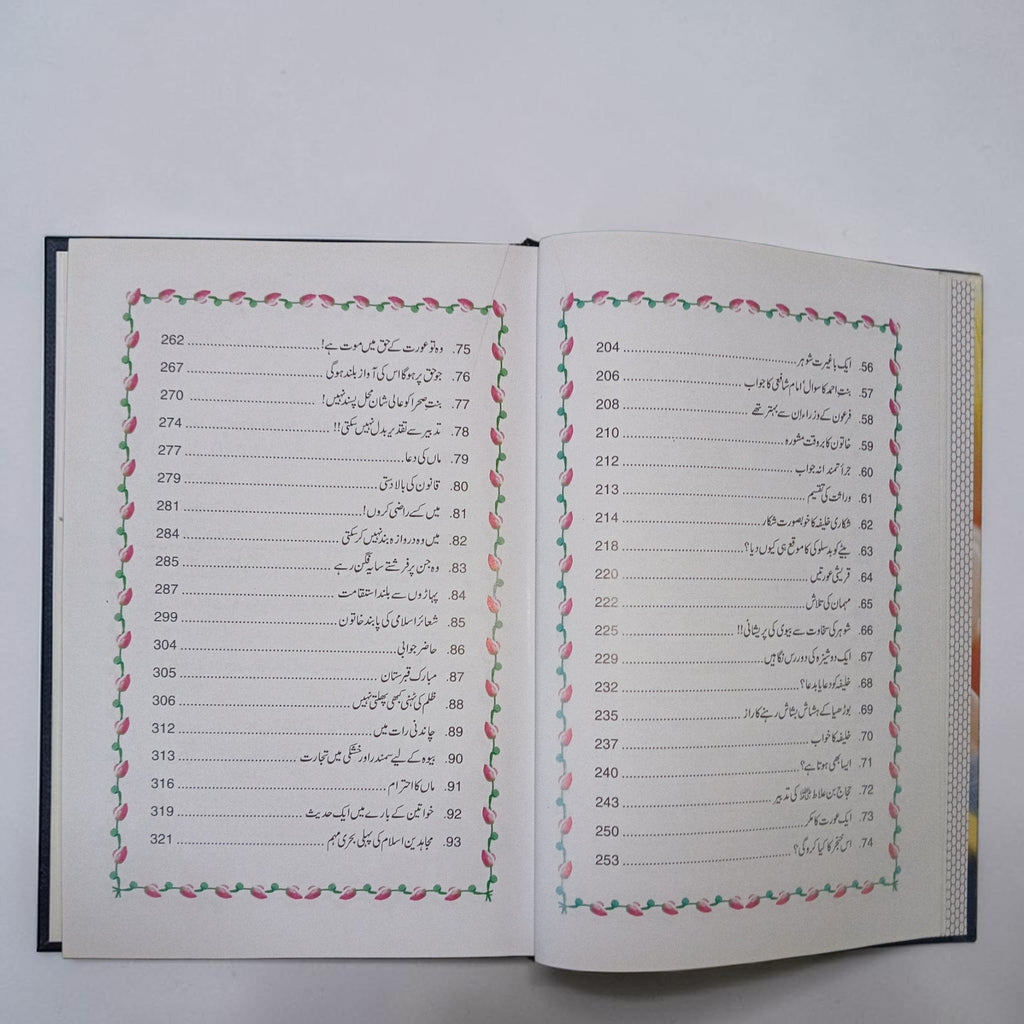 56. ایک باغیرت شوہر ........ 204
57. بنتِ احمد کا سوال امام شافعی کا جواب ........ 206
58. فرعون کے وزراء ان سے بہتر تھے ........ 208
59. خاتون کا بروقت مشورہ ........ 210
60. جرأتمندانہ جواب ........ 212
61. وراثت کی تقسیم ........ 213
62. شکاری خلیفہ کا خوبصورت شکار ........ 214
63. بیٹے کو بدسلوکی کا موقع ہی کیوں دیا؟ ........ 218
64. قریشی عورتیں ........ 220
65. مہمان کی تلاش ........ 222
66. شوہر کی سخاوت سے بیوی کی پریشانی!! ........ 225
67. ایک دوشیزہ کی دور رس نگاہیں ........ 229
68. خلیفہ کو دعا یا بددعا؟ ........ 232
69. بوڑھیا کے ہشاش بشاش رہنے کا راز ........ 235
70. خلیفہ کا خواب ........ 237
71. ایسا بھی ہوتا ہے؟ ........ 240
72. حجاج بن علاط رضی اللہ عنہ کی تدبیر ........ 243
73. ایک عورت کا مکر ........ 250
74. اس خنجر کا کیا کرو گی؟ ........ 253
75. وہ تو عورت کے حق میں موت ہے! ........ 262
76. جو حق پر ہوگا اس کی آواز بلند ہوگی ........ 267
77. بنتِ صحرا کو عالی شان محل پسند نہیں! ........ 270
78. تدبیر سے تقدیر بدل نہیں سکتی!! ........ 274
79. ماں کی دعا ........ 277
80. قانون کی بالادستی ........ 279
81. میں کسے راضی کروں! ........ 281
82. میں وہ دروازہ بند نہیں کرسکتی ........ 284
83. وہ جن پر فرشتے سایہ فگن رہے ........ 285
84. پہاڑوں سے بلند استقامت ........ 287
85. شعائر اسلامی کی پابند خاتون ........ 299
86. حاضر جوابی ........ 304
87. مبارک قبرستان ........ 305
88. ظلم کی ٹہنی کبھی پھلتی نہیں ........ 306
89. چاندنی رات میں ........ 312
90. بیوہ کے لیے سمندر اور خشکی میں تجارت ........ 313
91. ماں کا احترام ........ 316
92. خواتین کے بارے میں ایک حدیث ........ 319
93. مجاہدین اسلام کی پہلی بحری مہم ........ 321